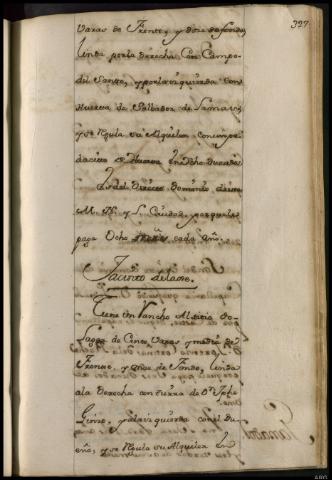 397
Varas de Frente, y doze de fondo,
linda por la derecha con Campo
del Santo, y por la izquierda con
Huerta de Salbador de
y se regula su Alquiler con un pe
dacito de Huerta en Ocho Ducados
Es del Directo Dominio de esta
M. N. y L. Ciudad, por quales
paga Ocho cada año.
Jacinto
Tiene Un Rancho Al sitio de
de Cinco Varas y media de
Frente, y onze de Fondo, linda
a la derecha con tierra de Dn
y a la izquierda con el Du
eño, y se Regula su Alquiler en